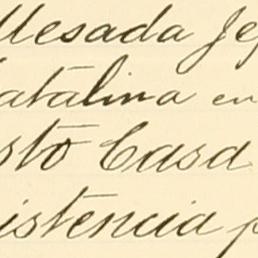 Mesada Jef
Catalina en
sto Casa
istencia p